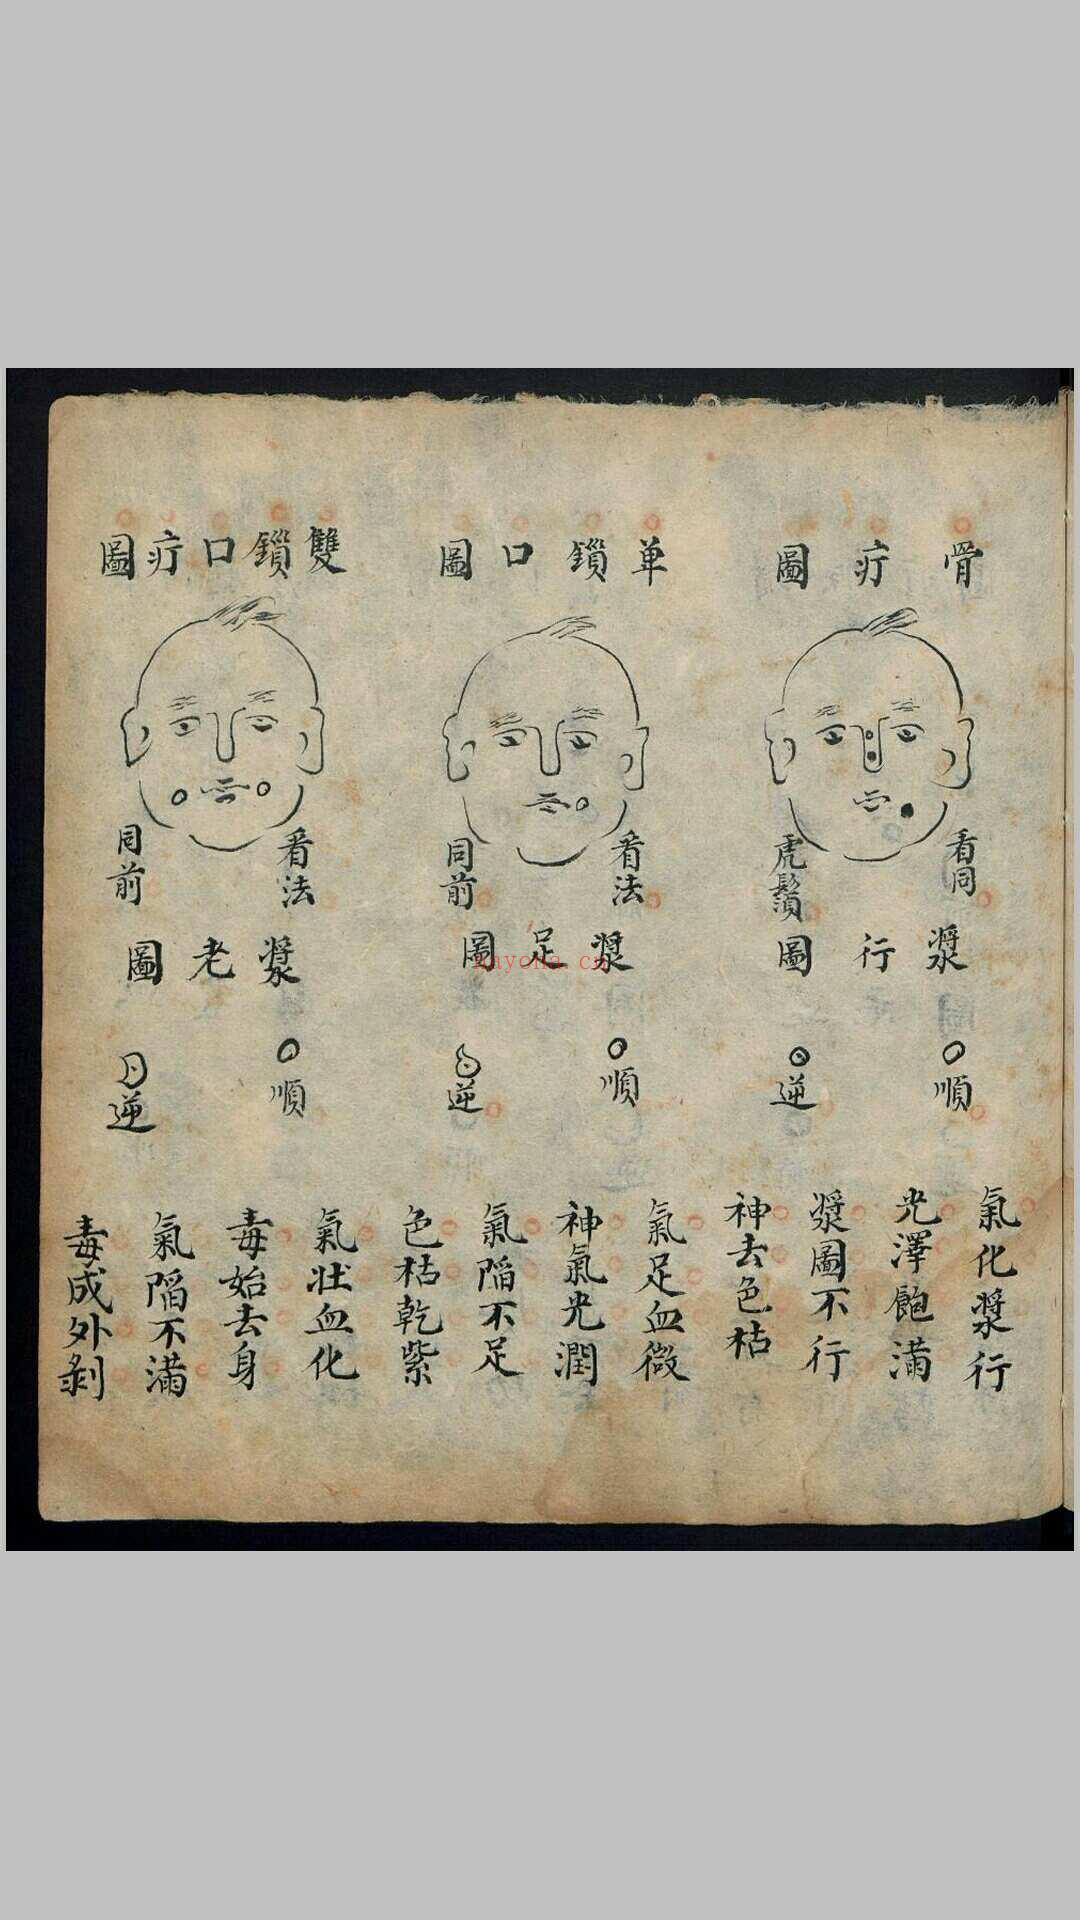 骨疔圖
看同
虎鬚
漿行圖
順
逆
氣化漿行
光澤飽滿
漿圖不行
神去色枯
单鎖口圖
看法
同前
漿足圖
順
逆
氣足血微
神氣光潤
氣陷不足
色枯乾紫
雙鎖口疔圖
看法
同前
漿老圖
順
逆
氣壯血化
毒始去身
氣陷不滿
毒成外剝